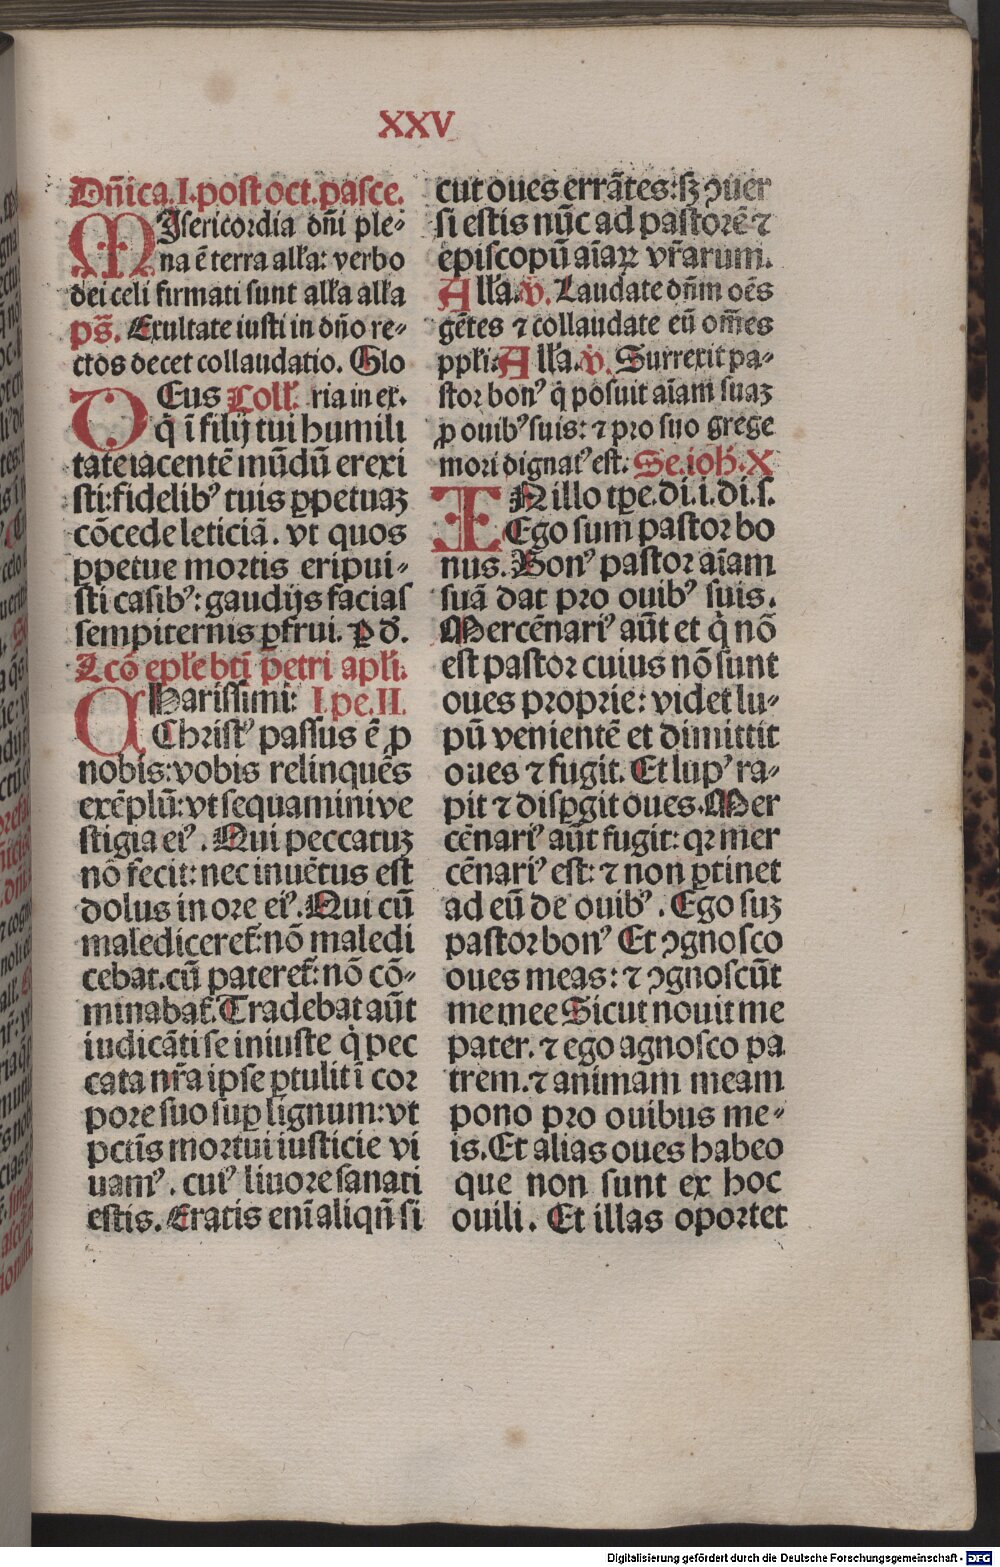 XXV
Dñica.I.post oct.pasce.
MIsericordia dñi ple-
na ē terra alľa: verbo
dei celi firmati sunt alľa alľa
ps̄. Exultate iusti in dño re-
ctos decet collaudatio. Glo
DEus Coll'. ria in ex.
q̇ ī filij tui humili
tate iacentē mūdū erexi
sti: fidelibꝰ tuis ꝑpetuaꝫ
cōcede leticiā. vt quos
ꝑpetue mortis eripui-
sti casibꝰ: gaudijs facias
sempiternis ꝑfrui. P d̄.
Lcō epľe bti petri apľi.
CHarissimi: I.pe.II.
Christꝰ passus ē ꝓ
nobis: vobis relinquēs
exēplū: vt sequamini ve
stigia eiꝰ. Qui peccatuꝫ
nō fecit: nec inuētus est
dolus in ore eiꝰ. Qui cū
malediceret̄: nō maledi
cebat. cū pateret̄: nō cō-
minabat̄. Tradebat aūt
iudicāti se iniuste q̇ pec
cata nr̄a ipse ꝑtulit ī cor
pore suo suꝑ lignum: vt
pctīs mortui iusticie vi
uamꝰ. cuiꝰ liuore sanati
estis. Eratis enī aliqn̄ si
cut oues errātes: sꝫ ꝯuer
si estis nūc ad pastorē ⁊
episcopū aīaꝝ vr̄arum.
Alľa. ℣. Laudate dñm oēs
gētes ⁊ collaudate eū om̄es
ppľi: Alľa. ℣. Surrexit pa-
stor bonꝰ q̇ posuit aīam suaꝫ
ꝓ ouibꝰ suis: ⁊ pro suo grege
mori dignatꝰ est. Se. ioh̄. X
IN illo tꝑe. di. i. di. s.
Ego sum pastor bo
nus. Bonꝰ pastor aīam
suā dat pro ouibꝰ suis.
Mercēnariꝰ aūt et q̇ nō
est pastor cuius nō sunt
oues proprie: videt lu-
pū venientē et dimittit
oues ⁊ fugit. Et lupꝰ ra-
pit ⁊ disꝑgit oues. Mer
cēnariꝰ aūt fugit: qꝛ mer
cēnariꝰ est: ⁊ non ꝑtinet
ad eū de ouibꝰ. Ego suꝫ
pastor bonꝰ Et ꝯgnosco
oues meas: ⁊ ꝯgnoscūt
me mee Sicut nouit me
pater. ⁊ ego agnosco pa
trem. ⁊ animam meam
pono pro ouibus me-
is. Et alias oues habeo
que non sunt ex hoc
ouili. Et illas oportet
Digitalisierung gefördert durch die Deutsche Forschungsgemeinschaft - DFG